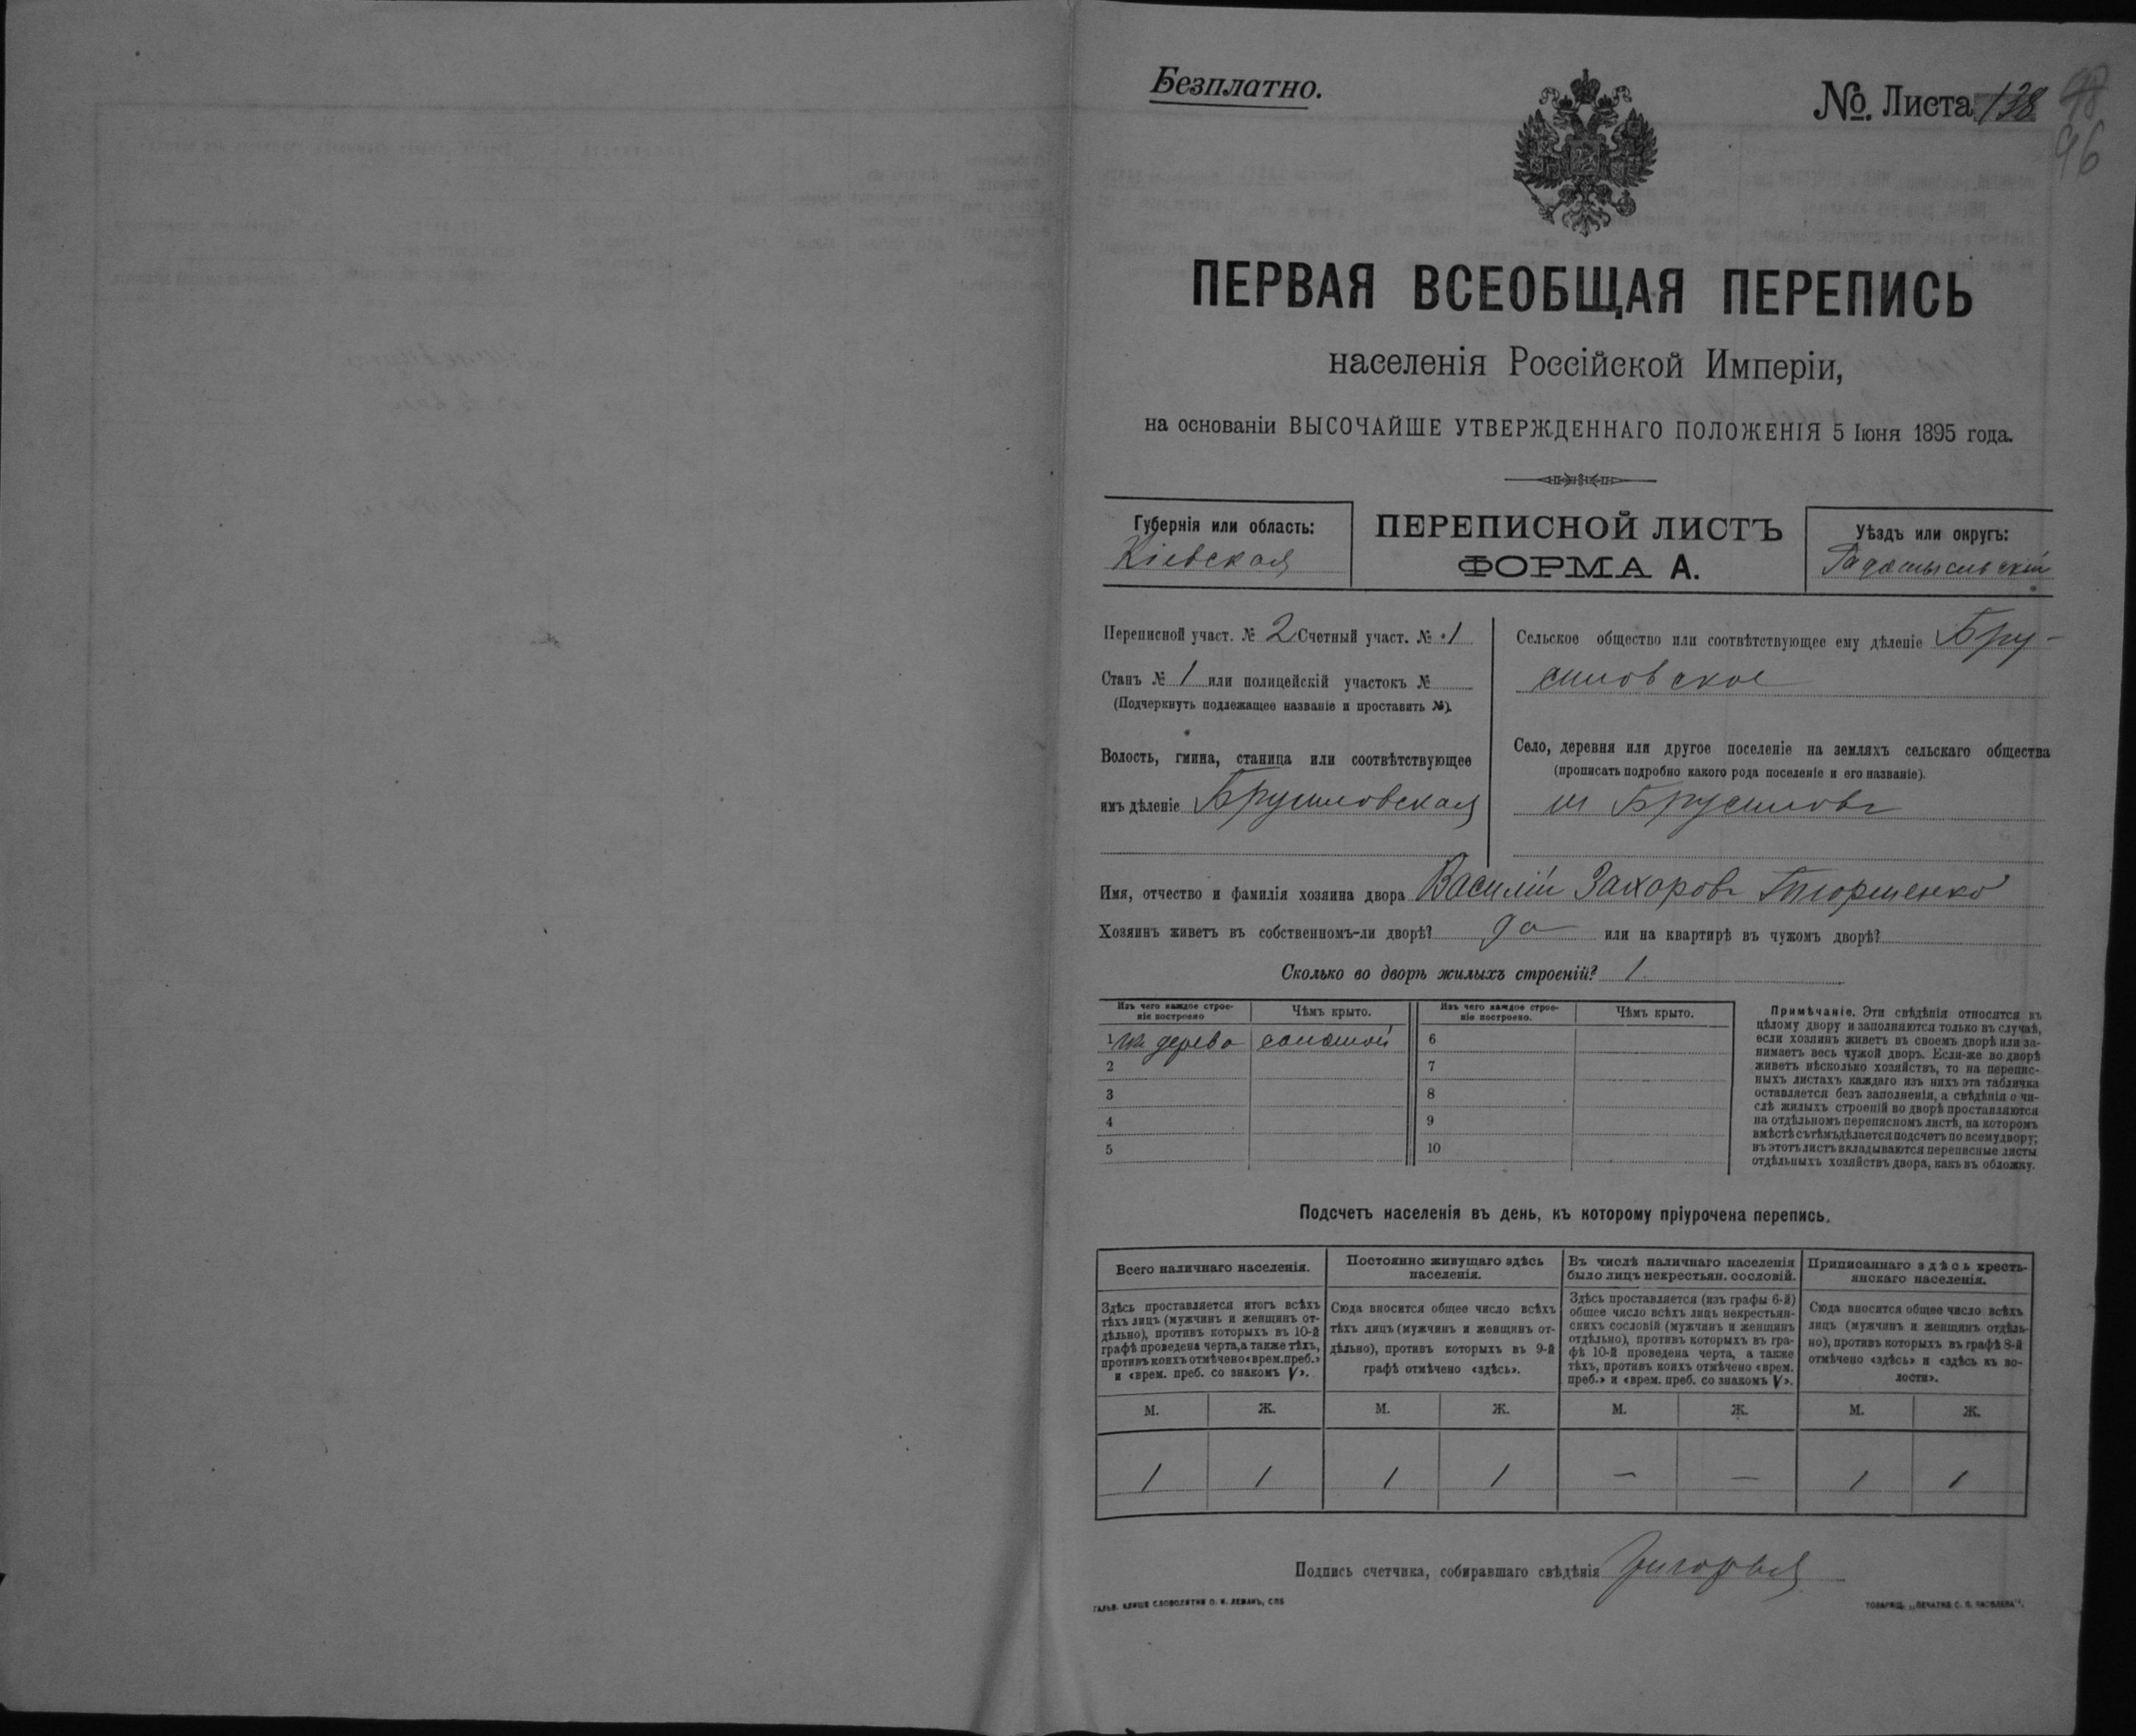 Безплатно.
№. Листа 138
98
96
ПЕРВАЯ ВСЕОБЩАЯ ПЕРЕПИСЬ
населенія Россійской Имперіи,
на основаніи ВЫСОЧАЙШЕ УТВЕРЖДЕННАГО ПОЛОЖЕНІЯ 5 Іюня 1895 года.
Губернія или область:
Кіевская
ПЕРЕПИСНОЙ ЛИСТЪ
ФОРМА А.
Уѣздъ или округъ:
Радомысльскій
Переписной участ. № 2 Счетный участ. № 1
Станъ № 1 или полицейскій участокъ №
(Подчеркнуть подлежащее названіе и проставить №).
Волость, гмина, станица или соотвѣтствующее
имъ дѣленіе Брусиловская
Сельское общество или соотвѣтствующее ему дѣленіе Бру-
силовское
Село, деревня или другое поселеніе на земляхъ сельскаго общества
(прописать подробно какого рода поселеніе и его названіе).
м Брусиловъ
Имя, отчество и фамилія хозяина двора Василій Захаровъ
Хозяинъ живетъ въ собственномъ-ли дворѣ? да или на квартирѣ въ чужомъ дворѣ?
Сколько во дворѣ жилыхъ строеній? 1
Изъ чего каждое строе-
ніе построено
Чѣмъ крыто.
Изъ чего каждое строе-
ніе построено.
Чѣмъ крыто.
1 изъ дерева соломой
2
3
4
5
6
7
8
9
10
Примѣчаніе. Эти свѣдѣнія относятся къ
цѣлому двору и заполняются только въ случаѣ,
если хозяинъ живетъ въ своемъ дворѣ или за-
нимаетъ весь чужой дворъ. Если-же во дворѣ
живетъ нѣсколько хозяйствъ, то на перепис-
ныхъ листахъ каждаго изъ нихъ эта табличка
оставляется безъ заполненія, а свѣдѣнія о чи-
слѣ жилыхъ строеній во дворѣ проставляются
на отдѣльномъ переписномъ листѣ, на которомъ
вмѣстѣ съ тѣмъ дѣлается подсчетъ по всему двору;
въ этотъ листъ вкладываются переписные листы
отдѣльныхъ хозяйствъ двора, какъ въ обложку.
Подсчетъ населенія въ день, къ которому пріурочена перепись.
Всего наличнаго населенія.
Здѣсь проставляется итогъ всѣхъ
тѣхъ лицъ (мужчинъ и женщинъ от-
дѣльно), противъ которыхъ въ 10-й
графѣ проведена черта, а также тѣхъ,
противъ коихъ отмѣчено «врем. преб.»
и «врем. преб. со знакомъ V».
Постоянно живущаго здѣсь
населенія.
Сюда вносится общее число всѣхъ
тѣхъ лицъ (мужчинъ и женщинъ от-
дѣльно), противъ которыхъ въ 9-й
графѣ отмѣчено «здѣсь».
Въ числѣ наличнаго населенія
было лицъ некрестьян. сословій.
Здѣсь проставляется (изъ графы 6-й)
общее число всѣхъ лицъ некрестьян-
скихъ сословій (мужчинъ и женщинъ
отдѣльно), противъ которыхъ въ гра-
фѣ 10-й проведена черта, а также
тѣхъ, противъ коихъ отмѣчено «врем.
преб.» и «врем. преб. со знакомъ V».
Приписаннаго здѣсь кресть-
янскаго населенія.
Сюда вносится общее число всѣхъ
лицъ (мужчинъ и женщинъ отдѣль-
но), противъ которыхъ въ графѣ 8-й
отмѣчено «здѣсь» и «здѣсь въ во-
лости».
М. Ж. М. Ж. М. Ж. М. Ж.
1 1 1 1 — — 1 1
Подпись счетчика, собиравшаго свѣдѣнія
ГАЛЬВ. КЛИШЕ СЛОВОЛИТНИ О. И. ЛЕМАНЪ, СПБ
ТОВАРИЩ. „ПЕЧАТНЯ С. П. ЯКОВЛЕВА".